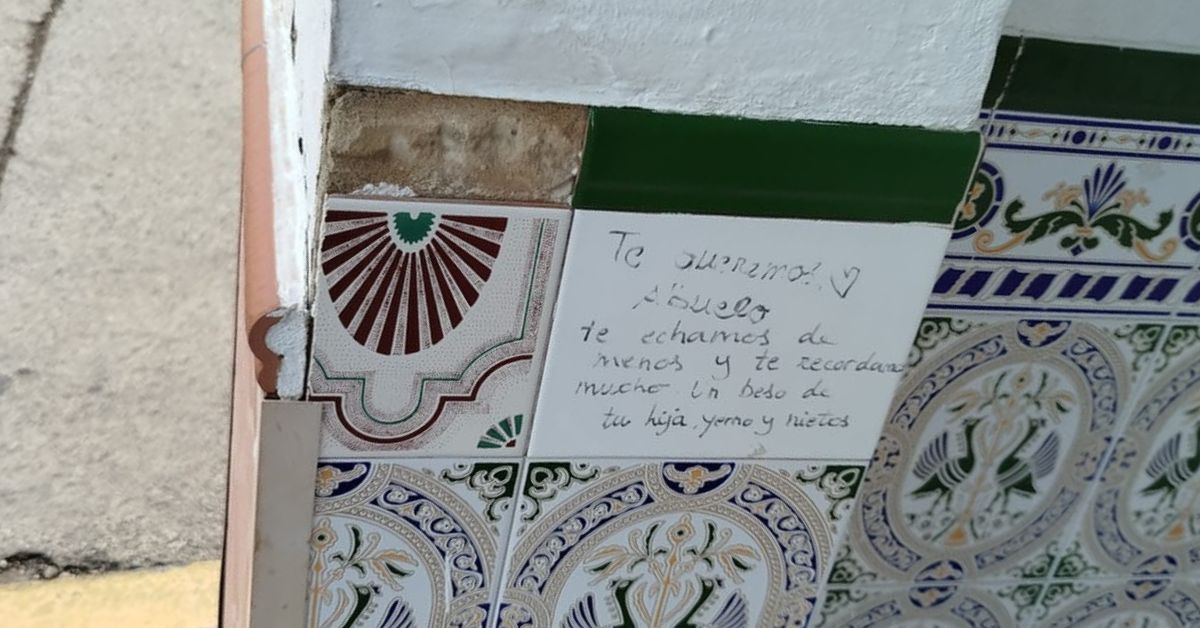 Te queremos ♡
Abuelo
te echamos de
menos y te recordamos
mucho. Un beso de
tu hija, yerno y nietos